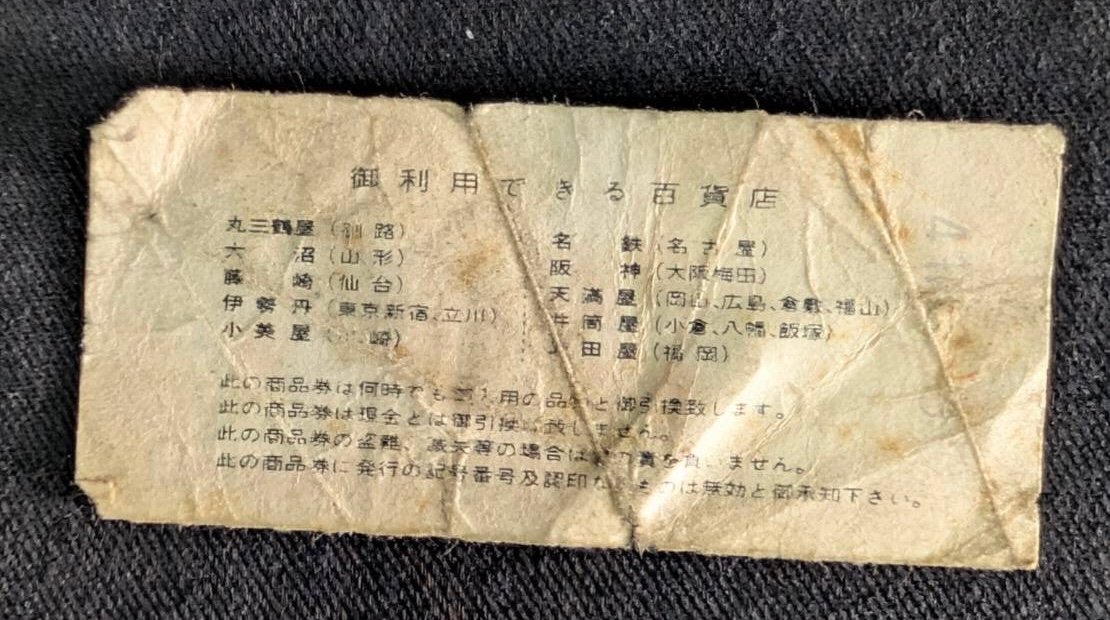 御利用できる百貨店
丸三鶴屋(釧路)
大沼(山形)
藤崎(仙台)
伊勢丹(東京新宿、立川)
小美屋(崎)
名鉄(名古屋)
阪神(大阪梅田)
天満屋(岡山、広島、倉敷、福山)
井筒屋(小倉、八幡、飯塚)
田屋(福岡)
此の商品券は何時でも用の品と御引換致します。
此の商品券は現金とは御引換致しません。
此の商品券の盗難、滅失等の場合は責を負いません。
此の商品券に発行の記号番号及認印なものは無効と御承知下さい。